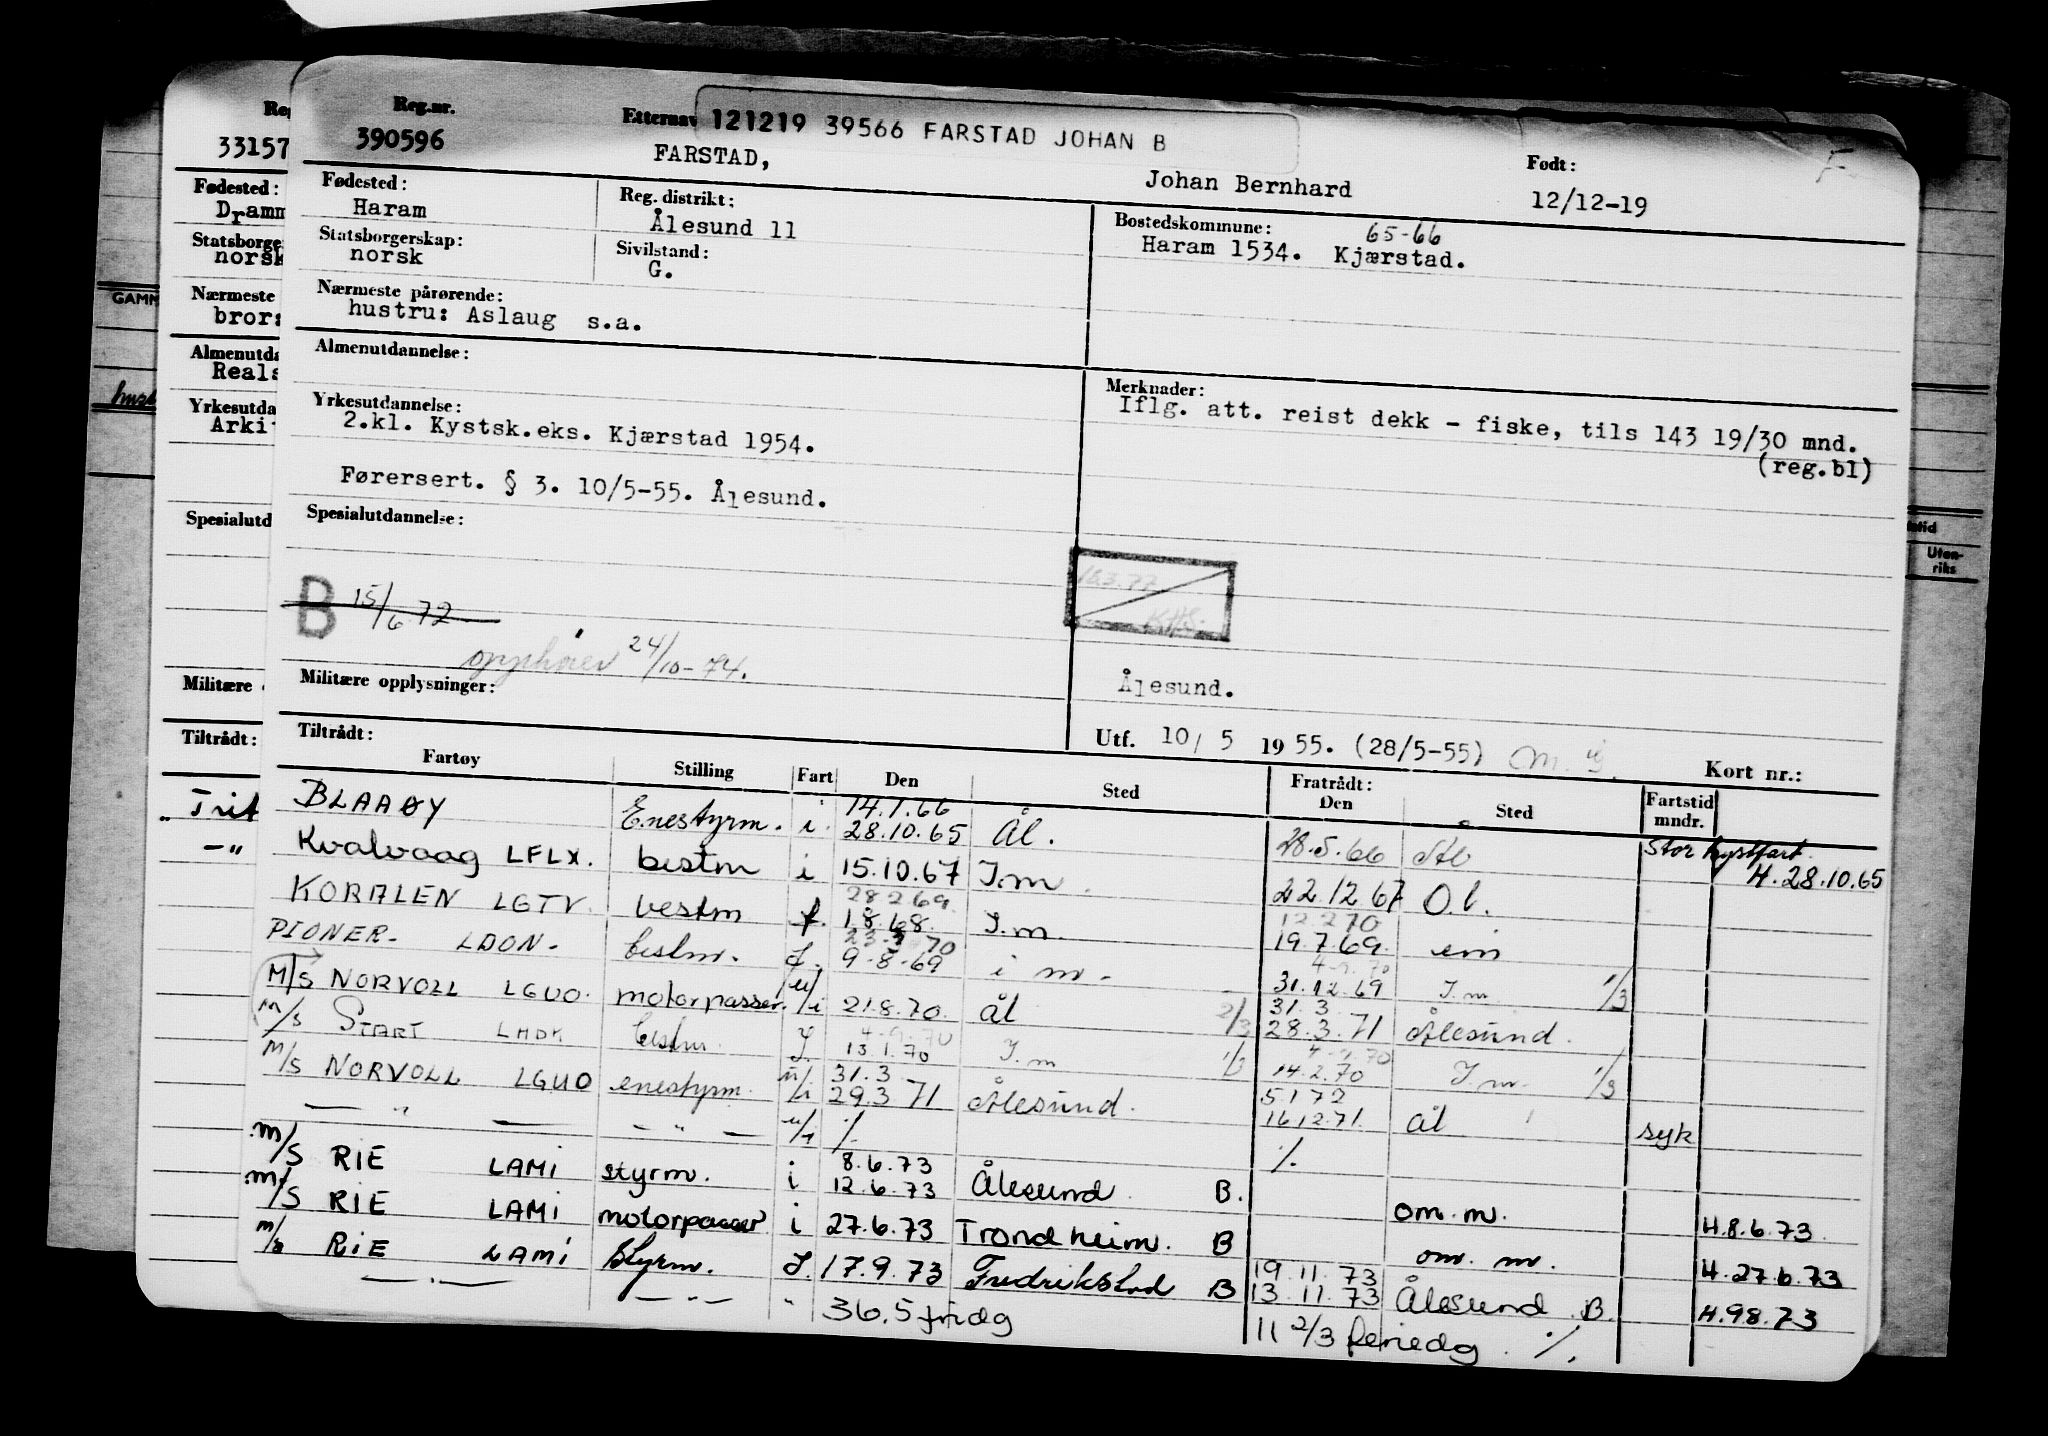 Reg.nr. Etternav 121219 39566 FARSTAD JOHAN B Født:
390596 FARSTAD, Johan Bernhard 12/12-19
33157
Fødested: Haram Reg. distrikt: Ålesund 11 Bostedskommune: 65-66
Haram 1534. Kjærstad.
Statsborgerskap: norsk Sivilstand: G.
Nærmeste pårørende:
hustru: Aslaug s.a.
Almenutdannelse:
Merknader:
Iflg. att. reist dekk - fiske, tils 143 19/30 mnd.
(reg.bl)
Yrkesutdannelse:
2.kl. Kystsk.eks. Kjærstad 1954.
Førersert. § 3. 10/5-55. Ålesund.
Spesialutdannelse:
B 15/6 72
opphører 24/10-74.
Militære opplysninger:
Ålesund.
Utf. 10/5 1955. (28/5-55) Kort nr.:
Tiltrådt: Fratrådt:
Fartøy Stilling Fart Den Sted Den Sted Fartstid mndr.
BLAAØY Enestyrm. i. 14.1.66 28.10.65 Ål. 28.5.66 Ål Stor kystfart. H. 28.10.65
Kvalvaag LFLX. bestm i 15.10.67 I.m 22.12.67 O.l.
KORALEN LGTV. bestm f. 28 2 69. 1.8.68. I.m. 12 2 70 19.7.69.
PIONER- LDON- bestm. f. 9-8-69 i m. 31.12.69 I.m. 1/3
M/S NORVOLL LGUO. motorpasser. u/i 21.8.70. Ål 2/3 31.3 28.3.71 Ålesund.
M/S START LHDK bestm. f. 13.1.70 I.m 14.2.70 I.m. 1/3
M/S NORVOLL LGUO enestyrm. u/i 31.3 29.3 71 Ålesund. 5 1 72 16 12 71. Ål syk
— " — - " - u/i % %
M/S RIE LAMI styrm. i 8.6.73 12.6.73 Ålesund B. om. m. H.8.6.73.
M/S RIE LAMI motorpasser i 27.6.73 Trondheim. B om. m. H.27.6.73
M/S RIE LAMI Styrm. f. 17.9.73 Fredrikstad B 19.11.73 13.11.73 Ålesund B. H.9 8.73
— " — - " - " 36.5 fridg 11 2/3 feriedg. %
Fødested:
Dramm
Statsborge
norsk
Nærmeste
bror:
Almenutda
Reals
Yrkesutda
Arkit
Spesialutd
Militære
Tiltrådt:
GAMM
Uten-
riks